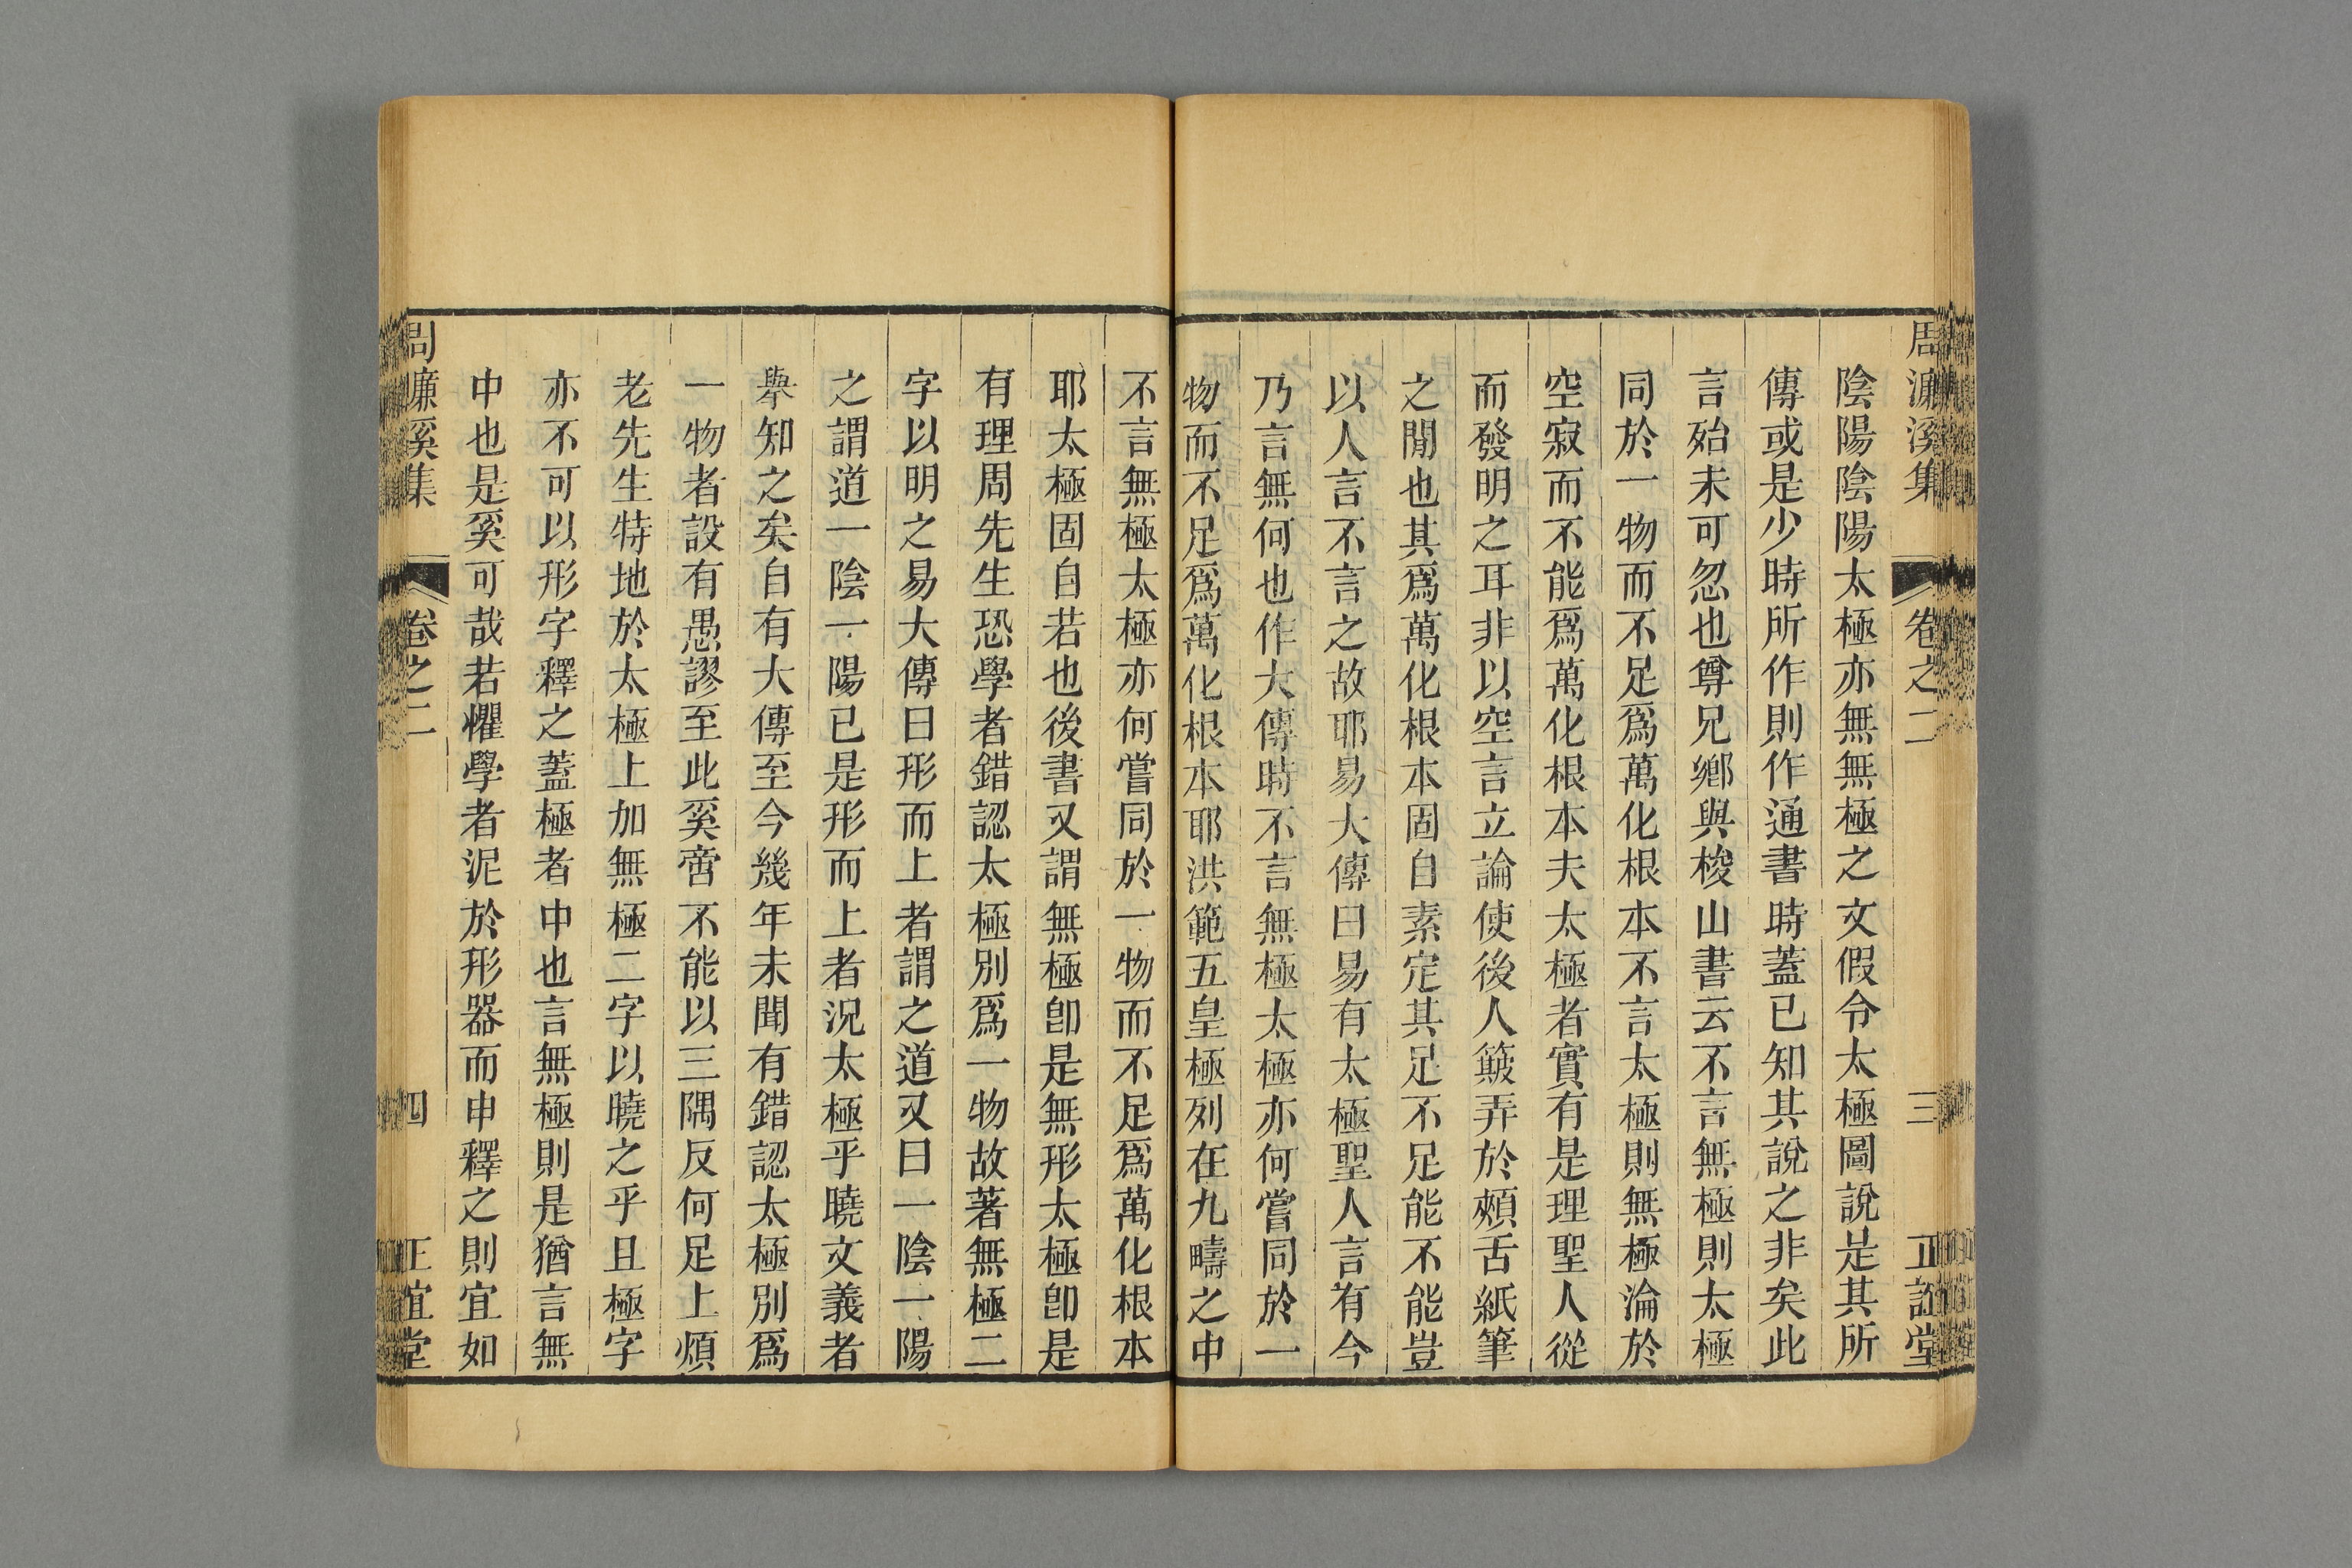 周濂溪集 卷之二 三 正誼堂
陰陽陰陽太極亦無無極之文假令太極圖說是其所
傳或是少時所作則作通書時蓋已知其說之非矣此
言殆未可忽也尊兄鄉與梭山書云不言無極則太極
同於一物而不足爲萬化根本不言太極則無極淪於
空寂而不能爲萬化根本夫太極者實有是理聖人從
而發明之耳非以空言立論使後人簸弄於頰舌紙筆
之閒也其爲萬化根本固自素定其足不足能不能豈
以人言不言之故耶易大傳曰易有太極聖人言有今
乃言無何也作大傳時不言無極太極亦何嘗同於一
物而不足爲萬化根本耶洪範五皇極列在九疇之中
不言無極太極亦何嘗同於一物而不足爲萬化根本
耶太極固自若也後書又謂無極卽是無形太極卽是
有理周先生恐學者錯認太極別爲一物故著無極二
字以明之易大傳曰形而上者謂之道又曰一陰一陽
之謂道一陰一陽已是形而上者況太極乎曉文義者
舉知之矣自有大傳至今幾年未聞有錯認太極別爲
一物者設有愚謬至此奚啻不能以三隅反何足上煩
老先生特地於太極上加無極二字以曉之乎且極字
亦不可以形字釋之蓋極者中也言無極則是猶言無
中也是奚可哉若懼學者泥於形器而申釋之則宜如
周濂溪集 卷之二 四 正誼堂